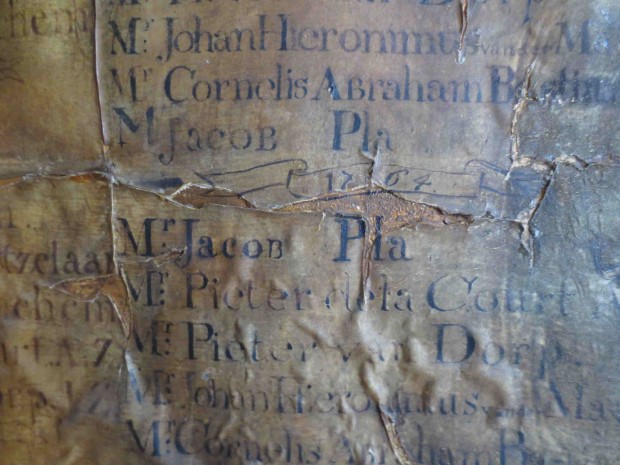 Mr. Johan Hieronimus van der Ma
Mr. Cornelis Abraham Bastia
Mr. Jacob Pla
1764.
Mr. Jacob Pla
tzelaar Mr. Pieter de la Court
chem Mr. Pieter van Dorp.
Mr. Johan Hieronimus van der Mae
Mr. Cornelis Abraham Ba